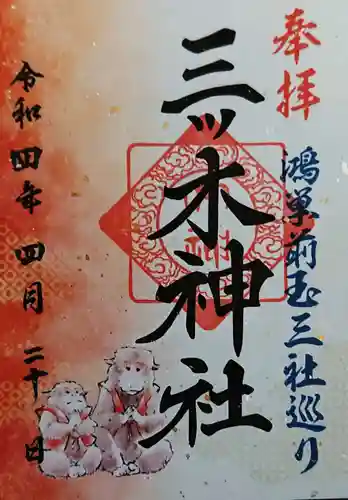 奉拝
鴻巣前玉三社巡り
三ッ木神社
令和四年四月二十八日